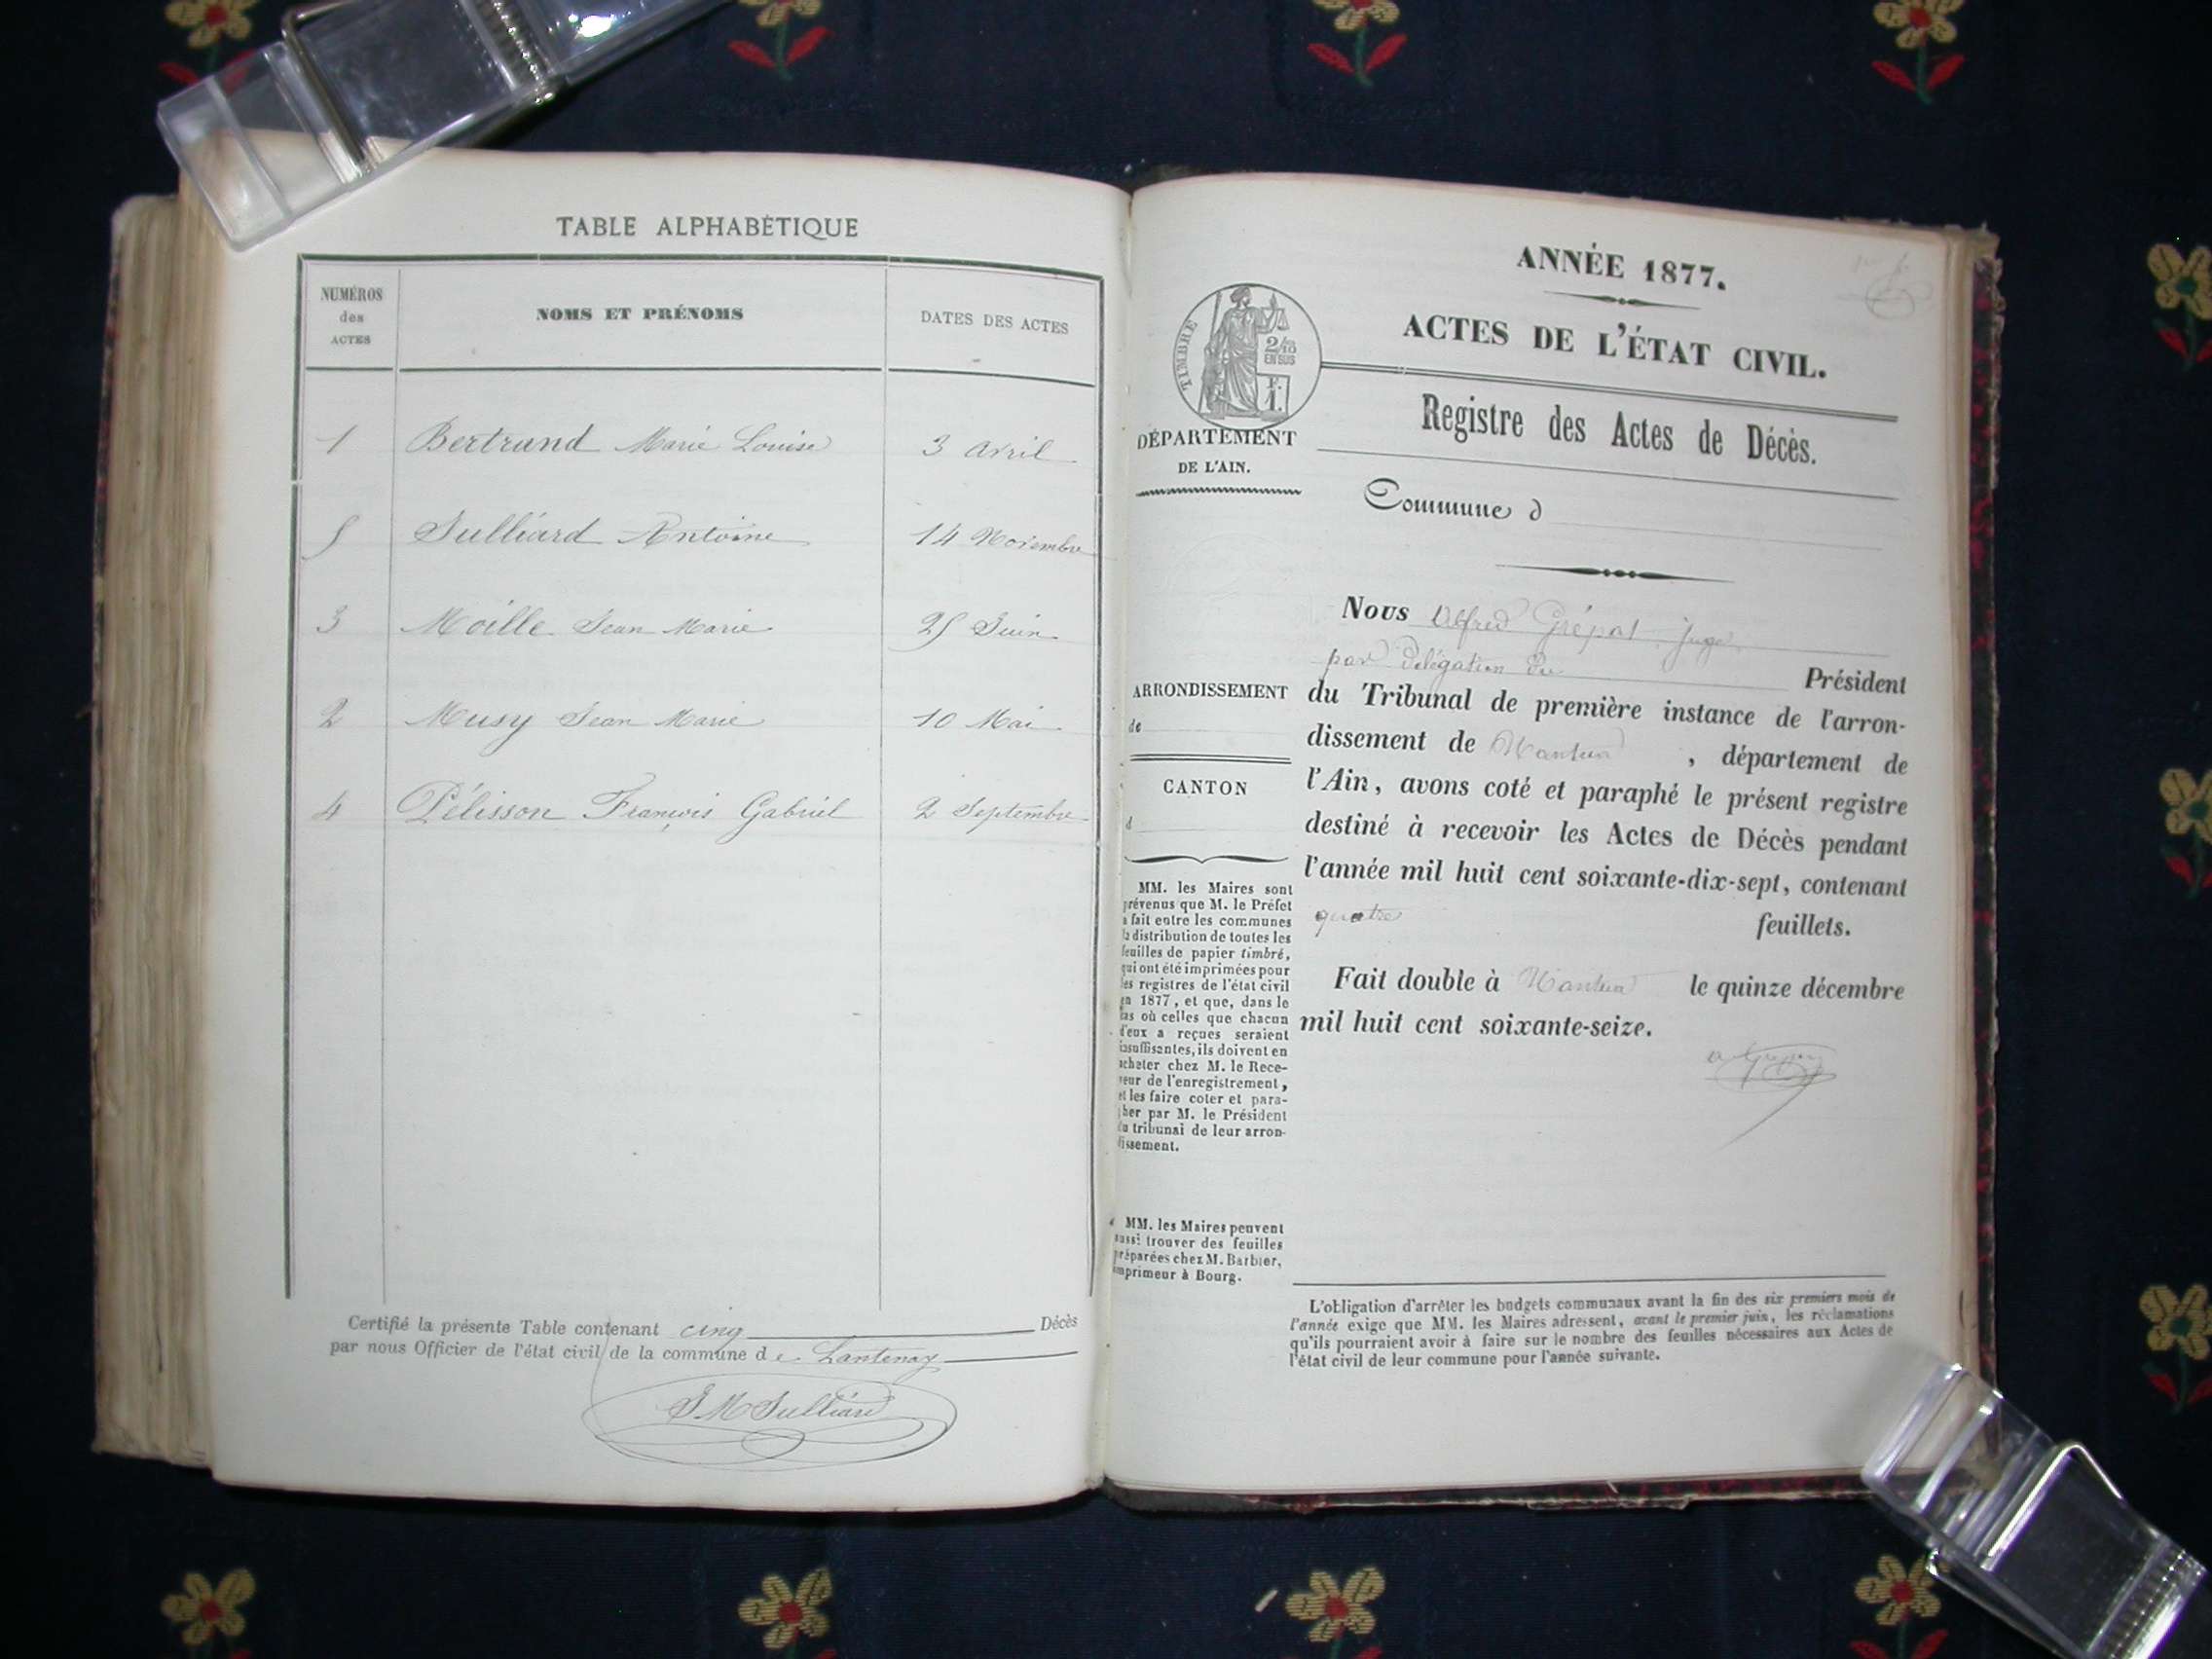 TABLE ALPHABÉTIQUE
NUMÉROS
des
ACTES
NOMS ET PRÉNOMS
DATES DES ACTES
1 Bertrand Marie Louise 3 Avril
5 Julliard Antoine 14 Novembre
3 Moille Jean Marie 25 Juin
2 Musy Jean Marie 10 Mai
4 Pélisson François Gabriel 2 Septembre
Certifié la présente Table contenant cinq Décès
par nous Officier de l'état civil de la commune de Lantenay
J M Julliard
ANNÉE 1877.
ACTES DE L'ÉTAT CIVIL.
TIMBRE
2/10
EN SUS
F.
1.
Registre des Actes de Décès.
DÉPARTEMENT
DE L'AIN.
Commune d
Nous Alfred Grépat Juge
par délégation du Président
du Tribunal de première instance de l'arron-
dissement de Nantua , département de
l'Ain, avons coté et paraphé le présent registre
destiné à recevoir les Actes de Décès pendant
l'année mil huit cent soixante-dix-sept, contenant
quatre feuillets.
Fait double à Nantua le quinze décembre
mil huit cent soixante-seize.
ARRONDISSEMENT
de
CANTON
d
MM. les Maires sont
prévenus que M. le Préfet
a fait entre les communes
la distribution de toutes les
feuilles de papier timbré,
qui ont été imprimées pour
les registres de l'état civil
en 1877, et que, dans le
cas où celles que chacun
d'eux a reçues seraient
insuffisantes, ils doivent en
acheter chez M. le Rece-
veur de l'enregistrement,
et les faire coter et para-
pher par M. le Président
du tribunal de leur arron-
dissement.
MM. les Maires peuvent
aussi trouver des feuilles
préparées chez M. Barbier,
imprimeur à Bourg.
L'obligation d'arrêter les budgets communaux avant la fin des six premiers mois de
l'année exige que MM. les Maires adressent, avant le premier juin, les réclamations
qu'ils pourraient avoir à faire sur le nombre des feuilles nécessaires aux Actes de
l'état civil de leur commune pour l'année suivante.